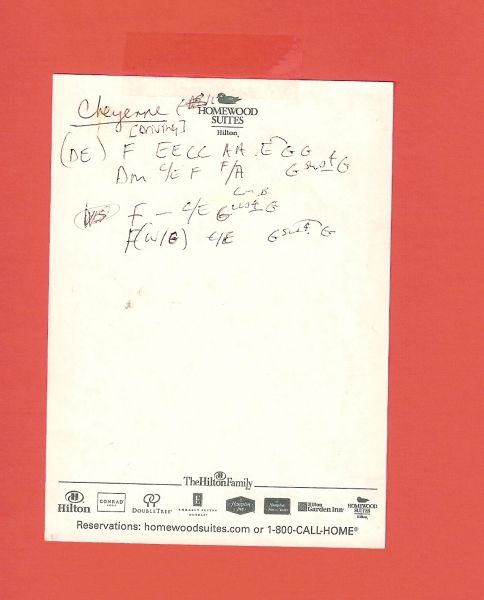 Cheyenne
HOMEWOOD
SUITES
Hilton
[Driving]
(DE) F EE CC AA E G G
Dm C/E F F/A Gsus4 G
F — C/E Gsus4 G
F(w/G) C/E Gsus4 G
The Hilton Family
Hilton CONRAD DOUBLETREE EMBASSY SUITES Hampton Inn Hampton Hilton Garden Inn HOMEWOOD SUITES Hilton
Reservations: homewoodsuites.com or 1-800-CALL-HOME®